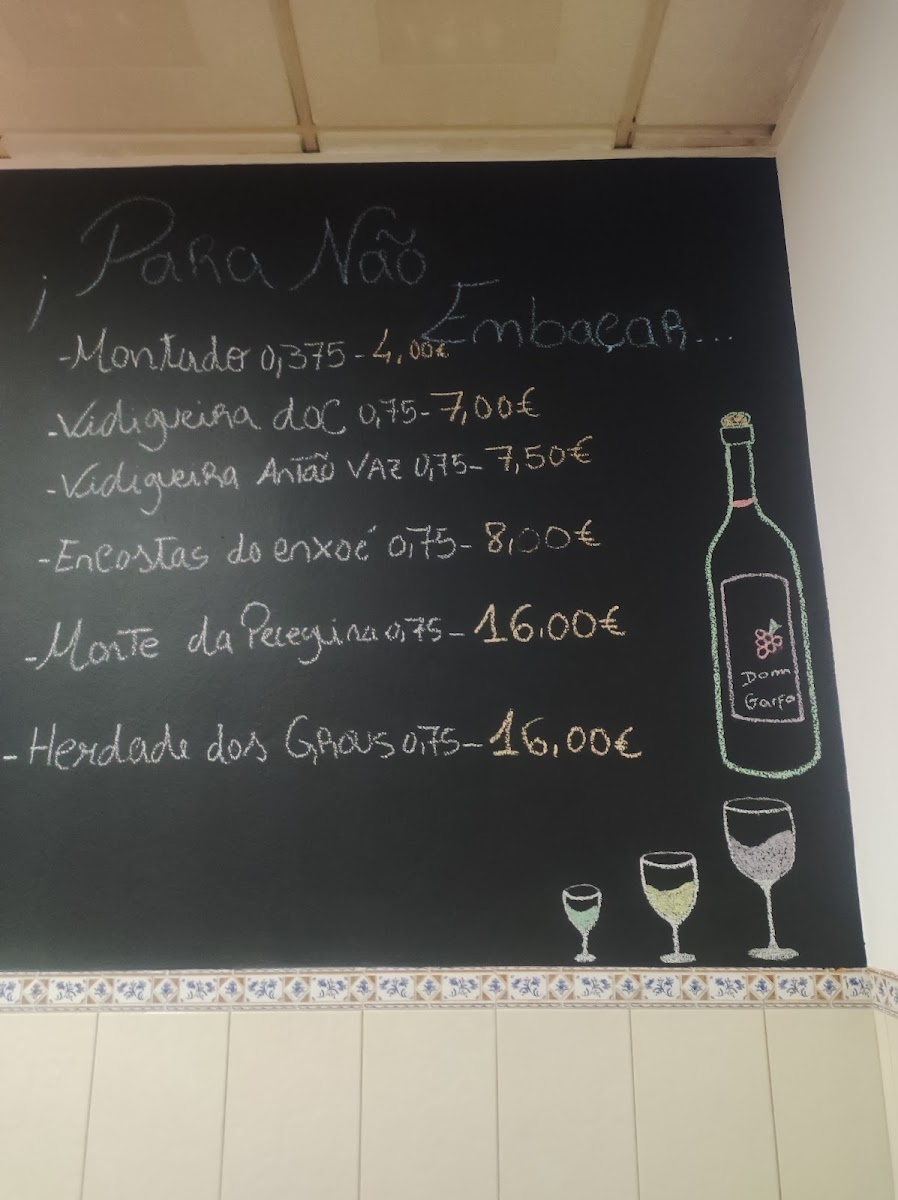 Para Não
Embaçar...
-Montado 0,375-4,00€
-Vidigueira doC 0,75-7,00€
-Vidigueira Antão VAZ 0,75-7,50€
-Encostas do enxoé 0,75-8,00€
-Monte da Peceguina 0,75-16,00€
-Herdade dos GROUS 0,75-16,00€
Dom
Garfo